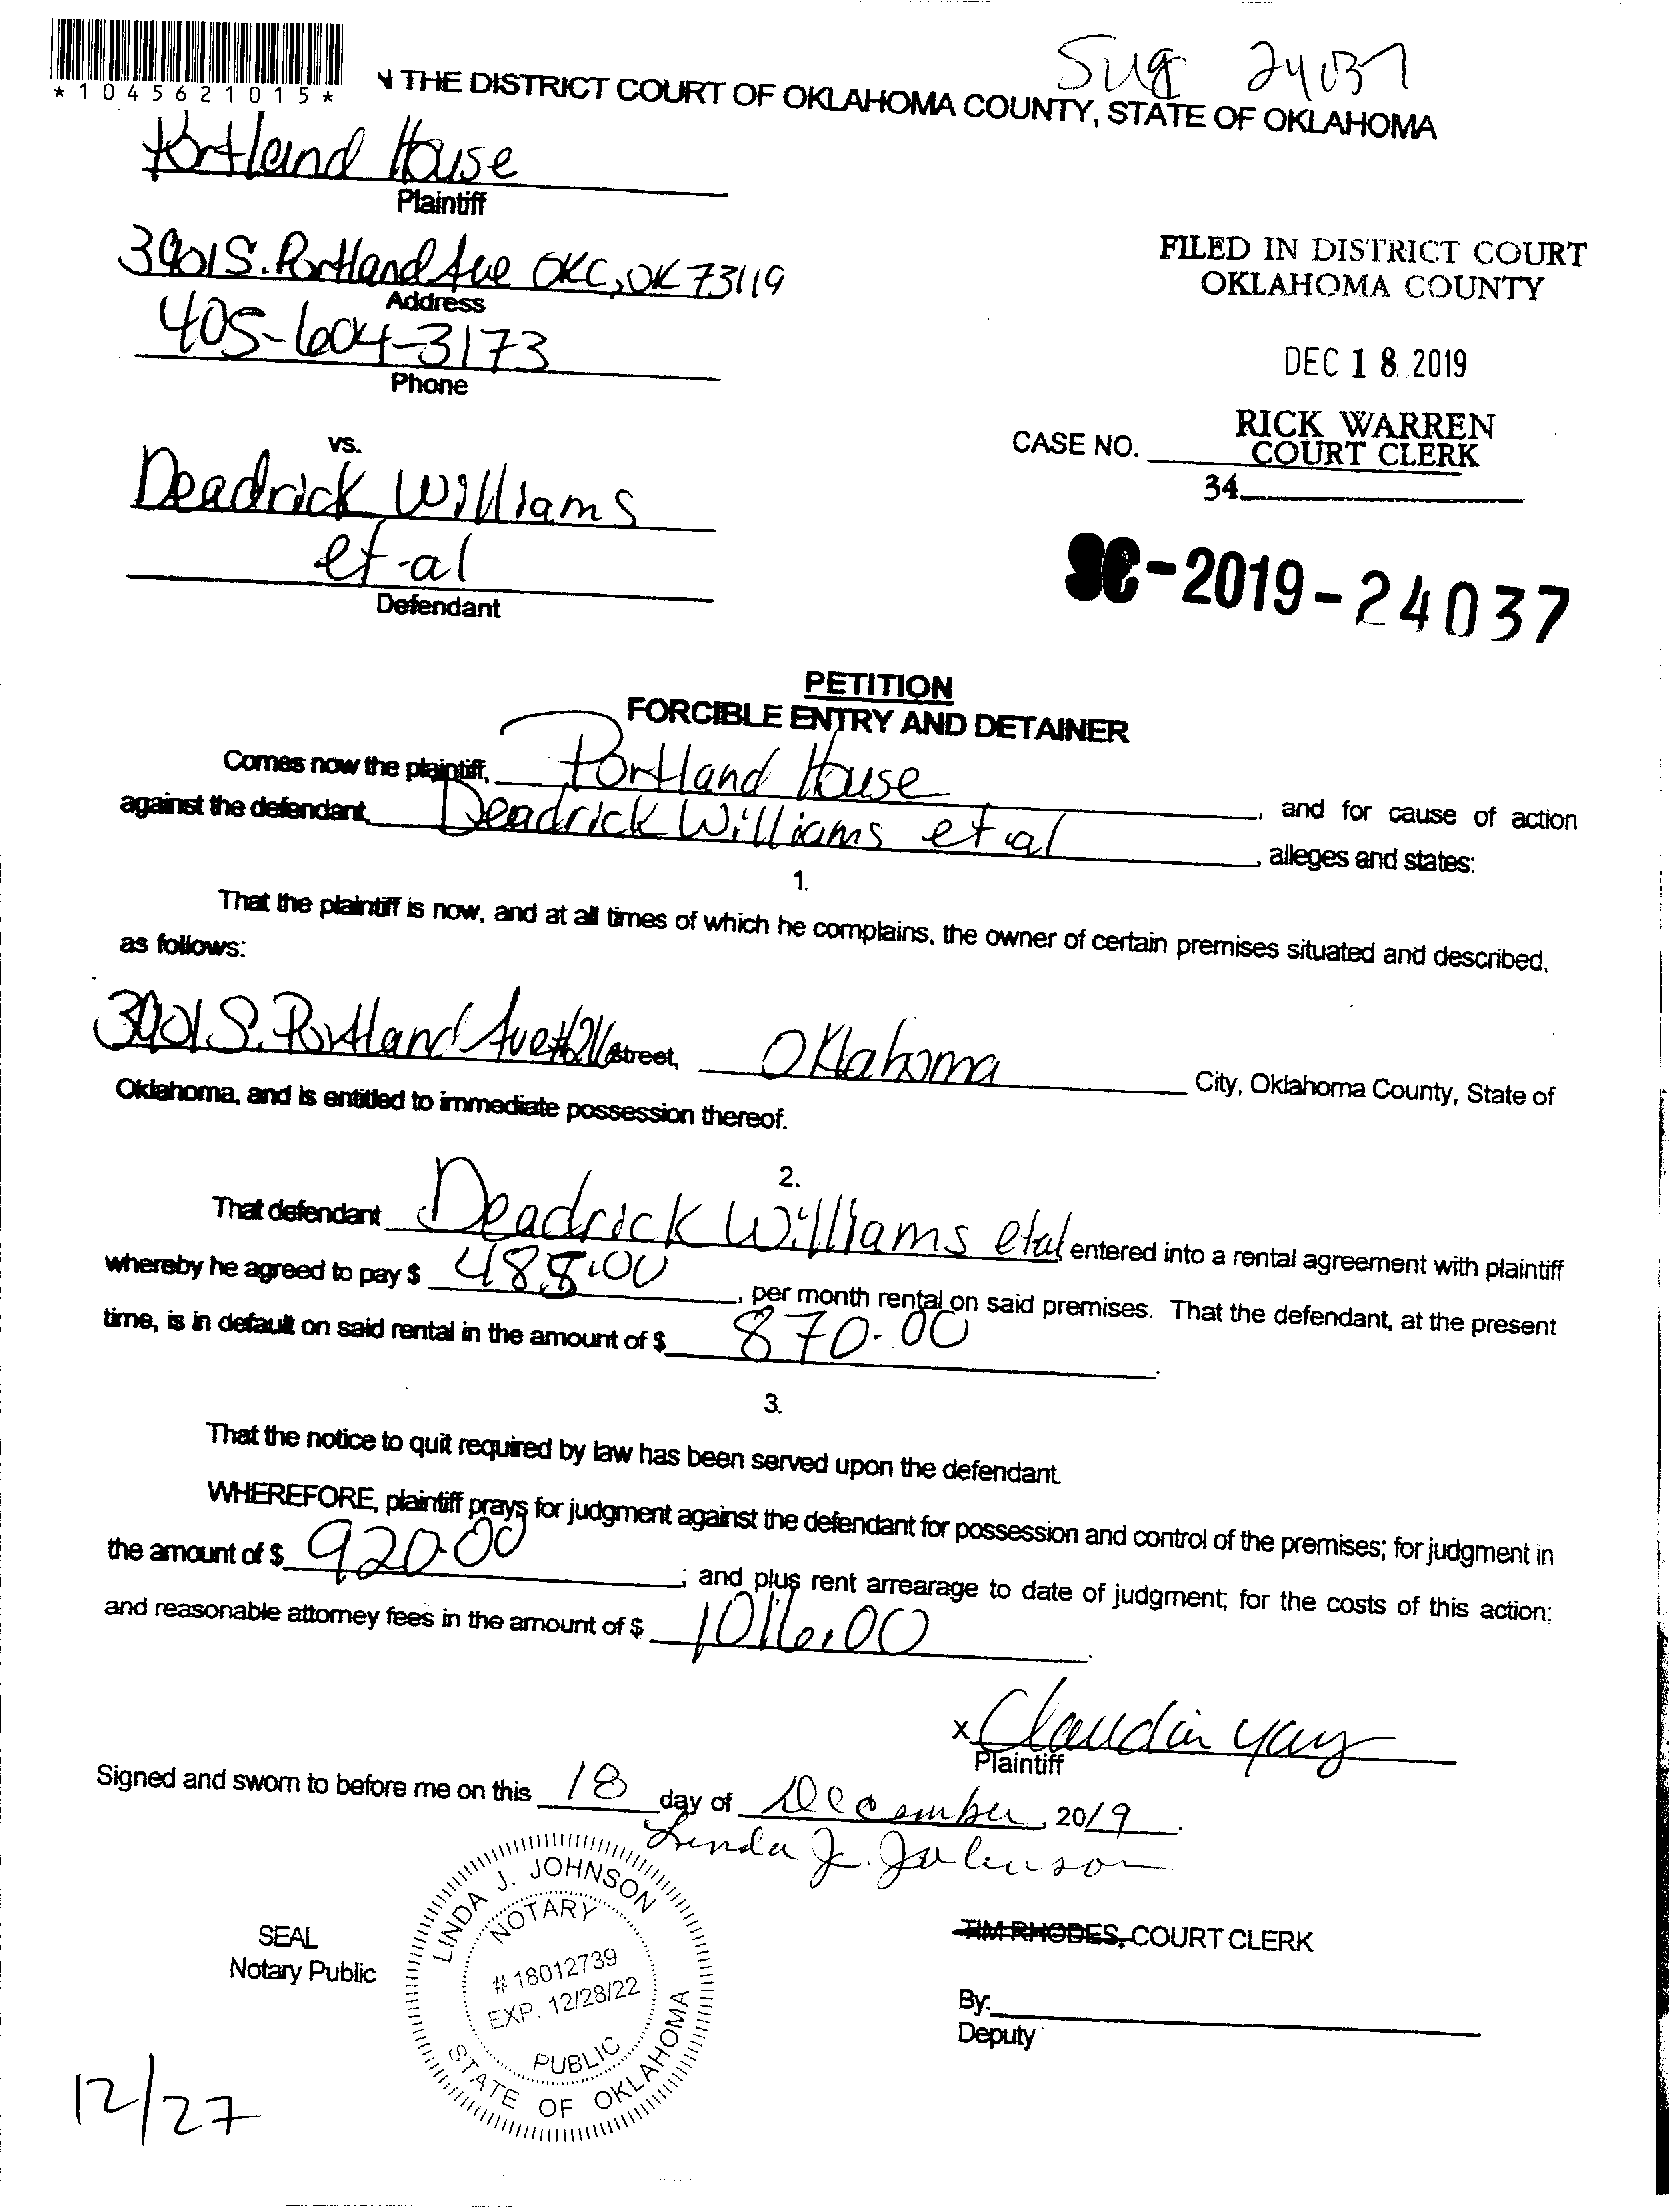 *1045621015*
Sug 24037
N THE DISTRICT COURT OF OKLAHOMA COUNTY, STATE OF OKLAHOMA
Portland House
Plaintiff
3901 S. Portland Ave OKC, OK 73119
Address
405-604-3173
Phone
FILED IN DISTRICT COURT
OKLAHOMA COUNTY
DEC 18 2019
RICK WARREN
COURT CLERK
CASE NO.
34
vs.
Deadrick Williams
et-al
Defendant
SC-2019-24037
PETITION
FORCIBLE ENTRY AND DETAINER
Comes now the plaintiff, Portland House
against the defendant, Deadrick Williams et al, and for cause of action
alleges and states:
1.
That the plaintiff is now, and at all times of which he complains, the owner of certain premises situated and described,
as follows:
3901 S. Portland Ave #211 street, Oklahoma City, Oklahoma County, State of
Oklahoma, and is entitled to immediate possession thereof.
2.
That defendant Deadrick Williams etal, entered into a rental agreement with plaintiff
whereby he agreed to pay $ 488.00, per month rental on said premises. That the defendant, at the present
time, is in default on said rental in the amount of $ 870.00.
3.
That the notice to quit required by law has been served upon the defendant.
WHEREFORE, plaintiff prays for judgment against the defendant for possession and control of the premises; for judgment in
the amount of $ 920.00; and plus rent arrearage to date of judgment; for the costs of this action:
and reasonable attorney fees in the amount of $ 1016.00.
x Claudia Yay
Plaintiff
Signed and sworn to before me on this 18 day of December, 2019.
Linda J. Johnson
SEAL
Notary Public
LINDA J. JOHNSON
NOTARY
# 18012739
EXP. 12/28/22
PUBLIC
STATE OF OKLAHOMA
TIM RHODES, COURT CLERK
By:
Deputy
12/27